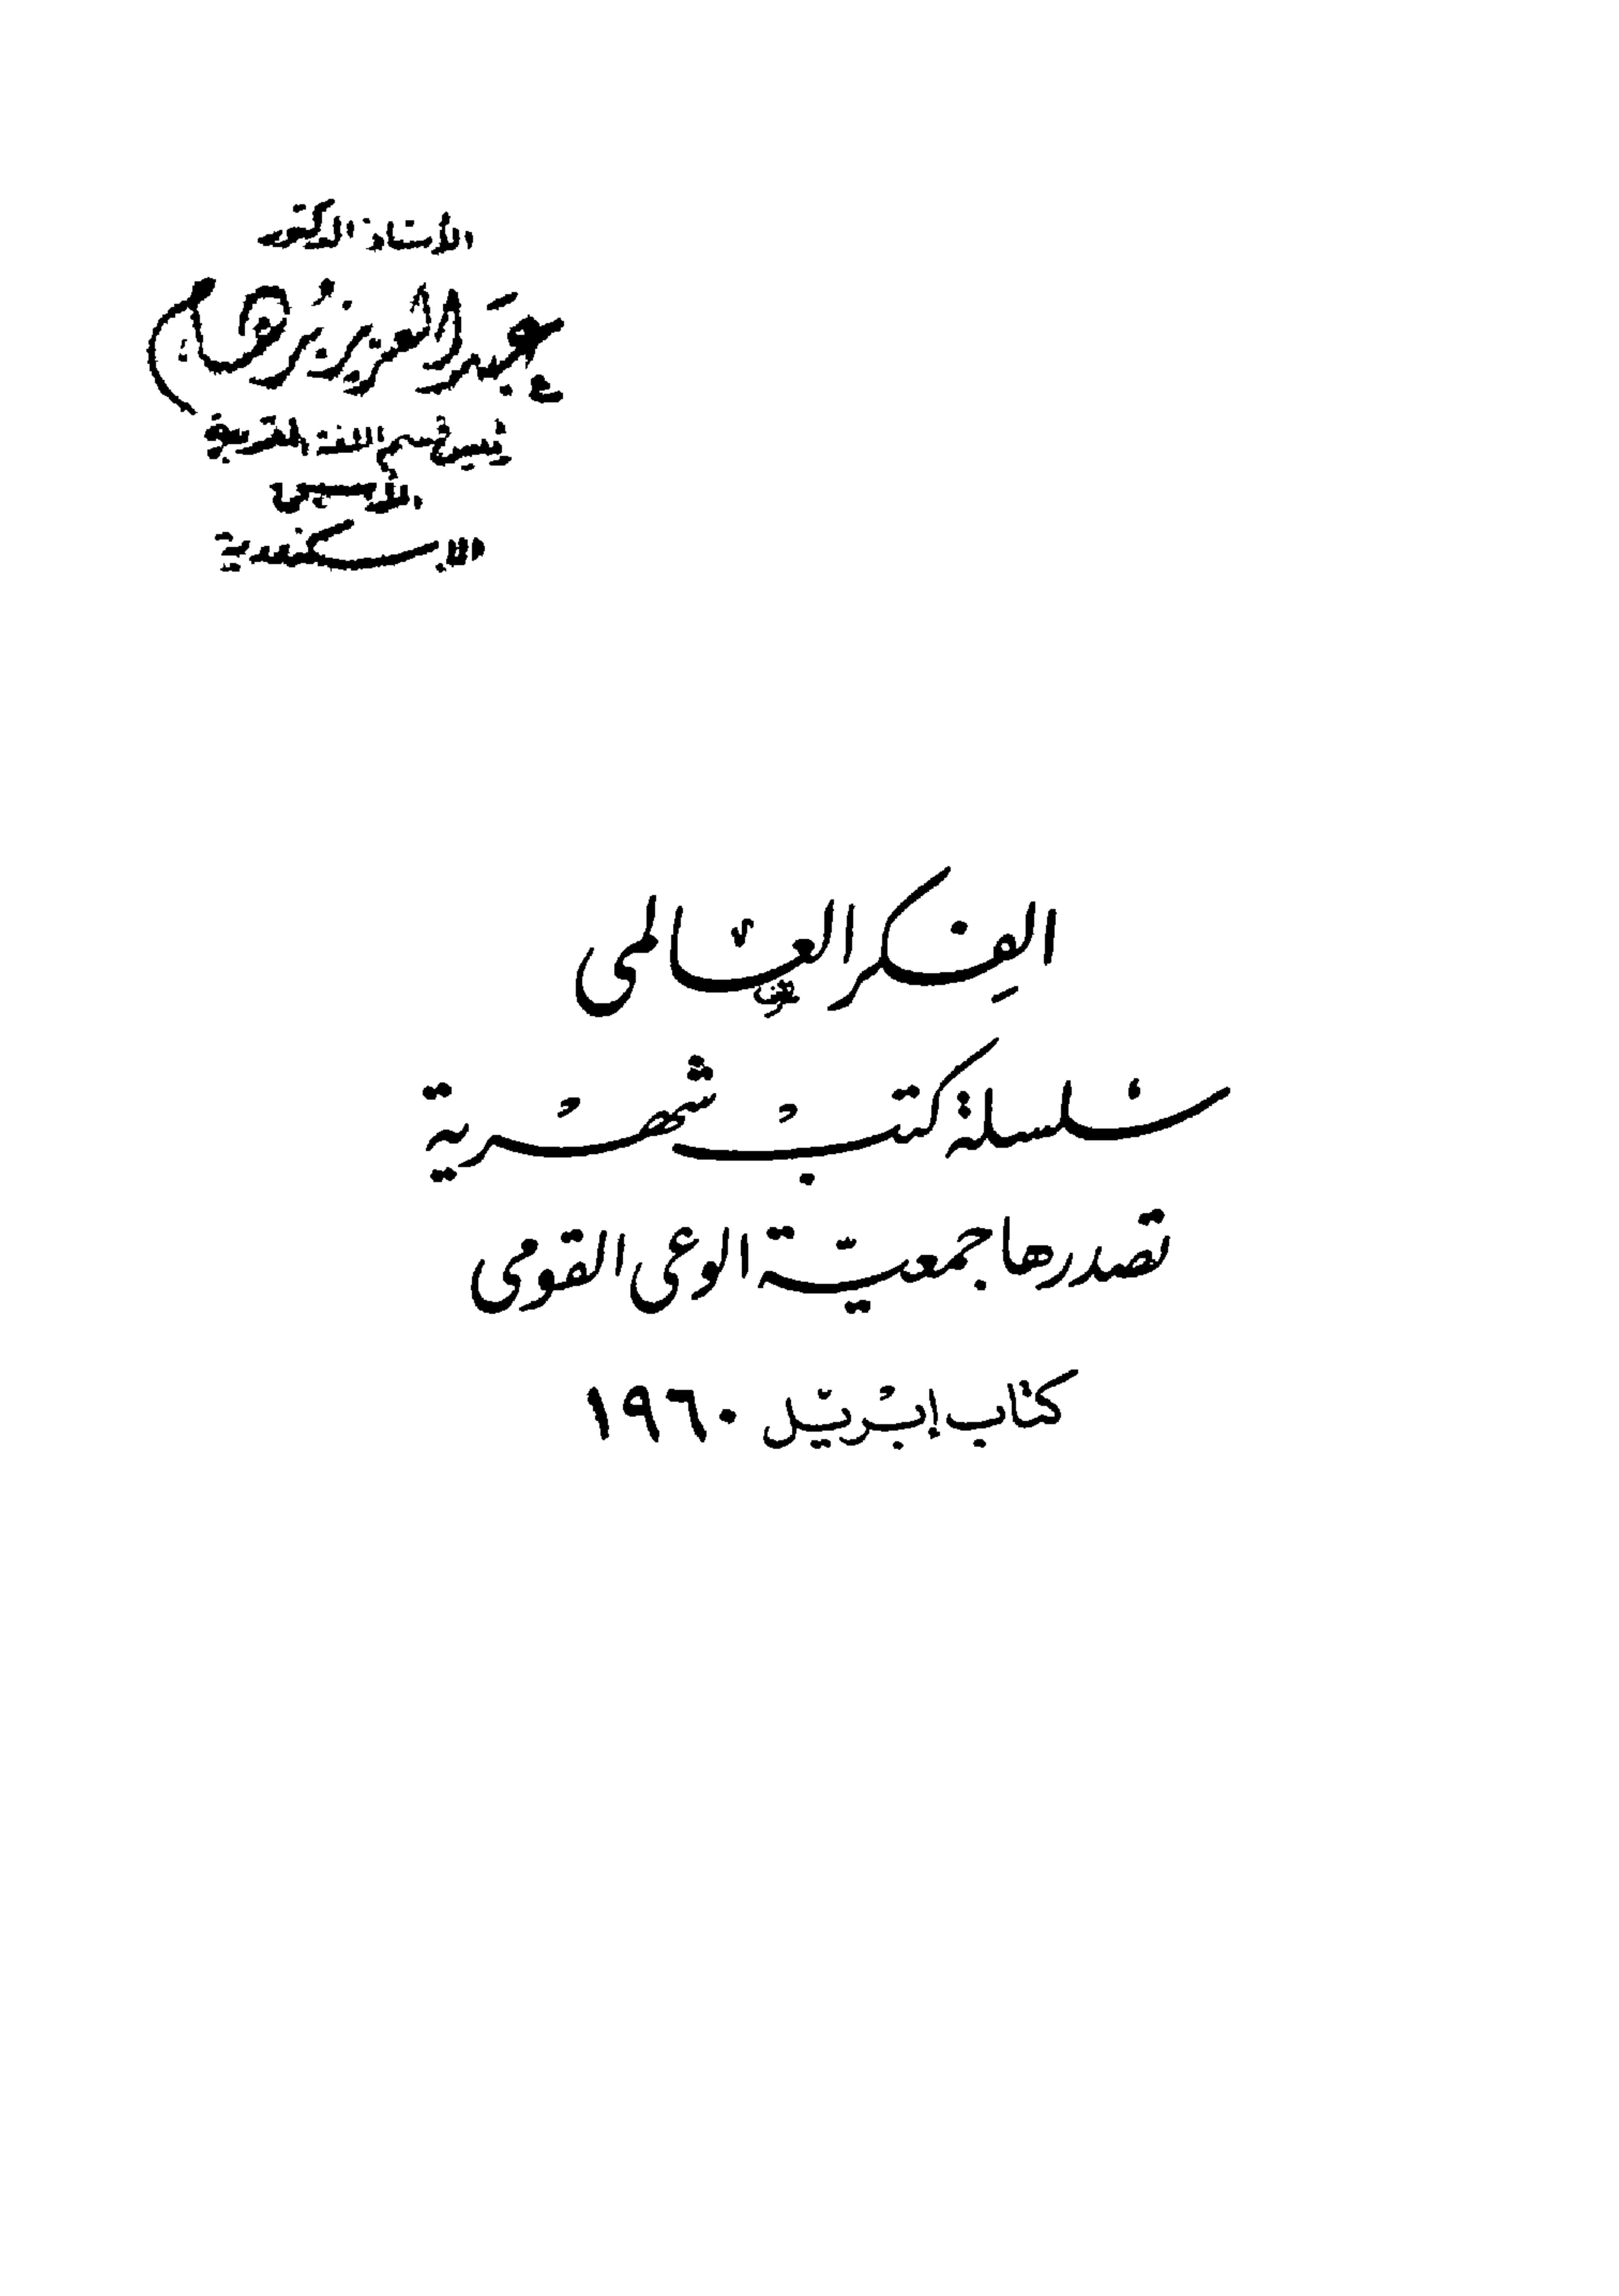 الأستاذ الدكتور
عبد العزيز برهام
الإسكندرية
الفكر العالمى
سلسلة كتب شهرية
تصدرها جمعية الوعى القومى
كتاب إبريل ١٩٦٠